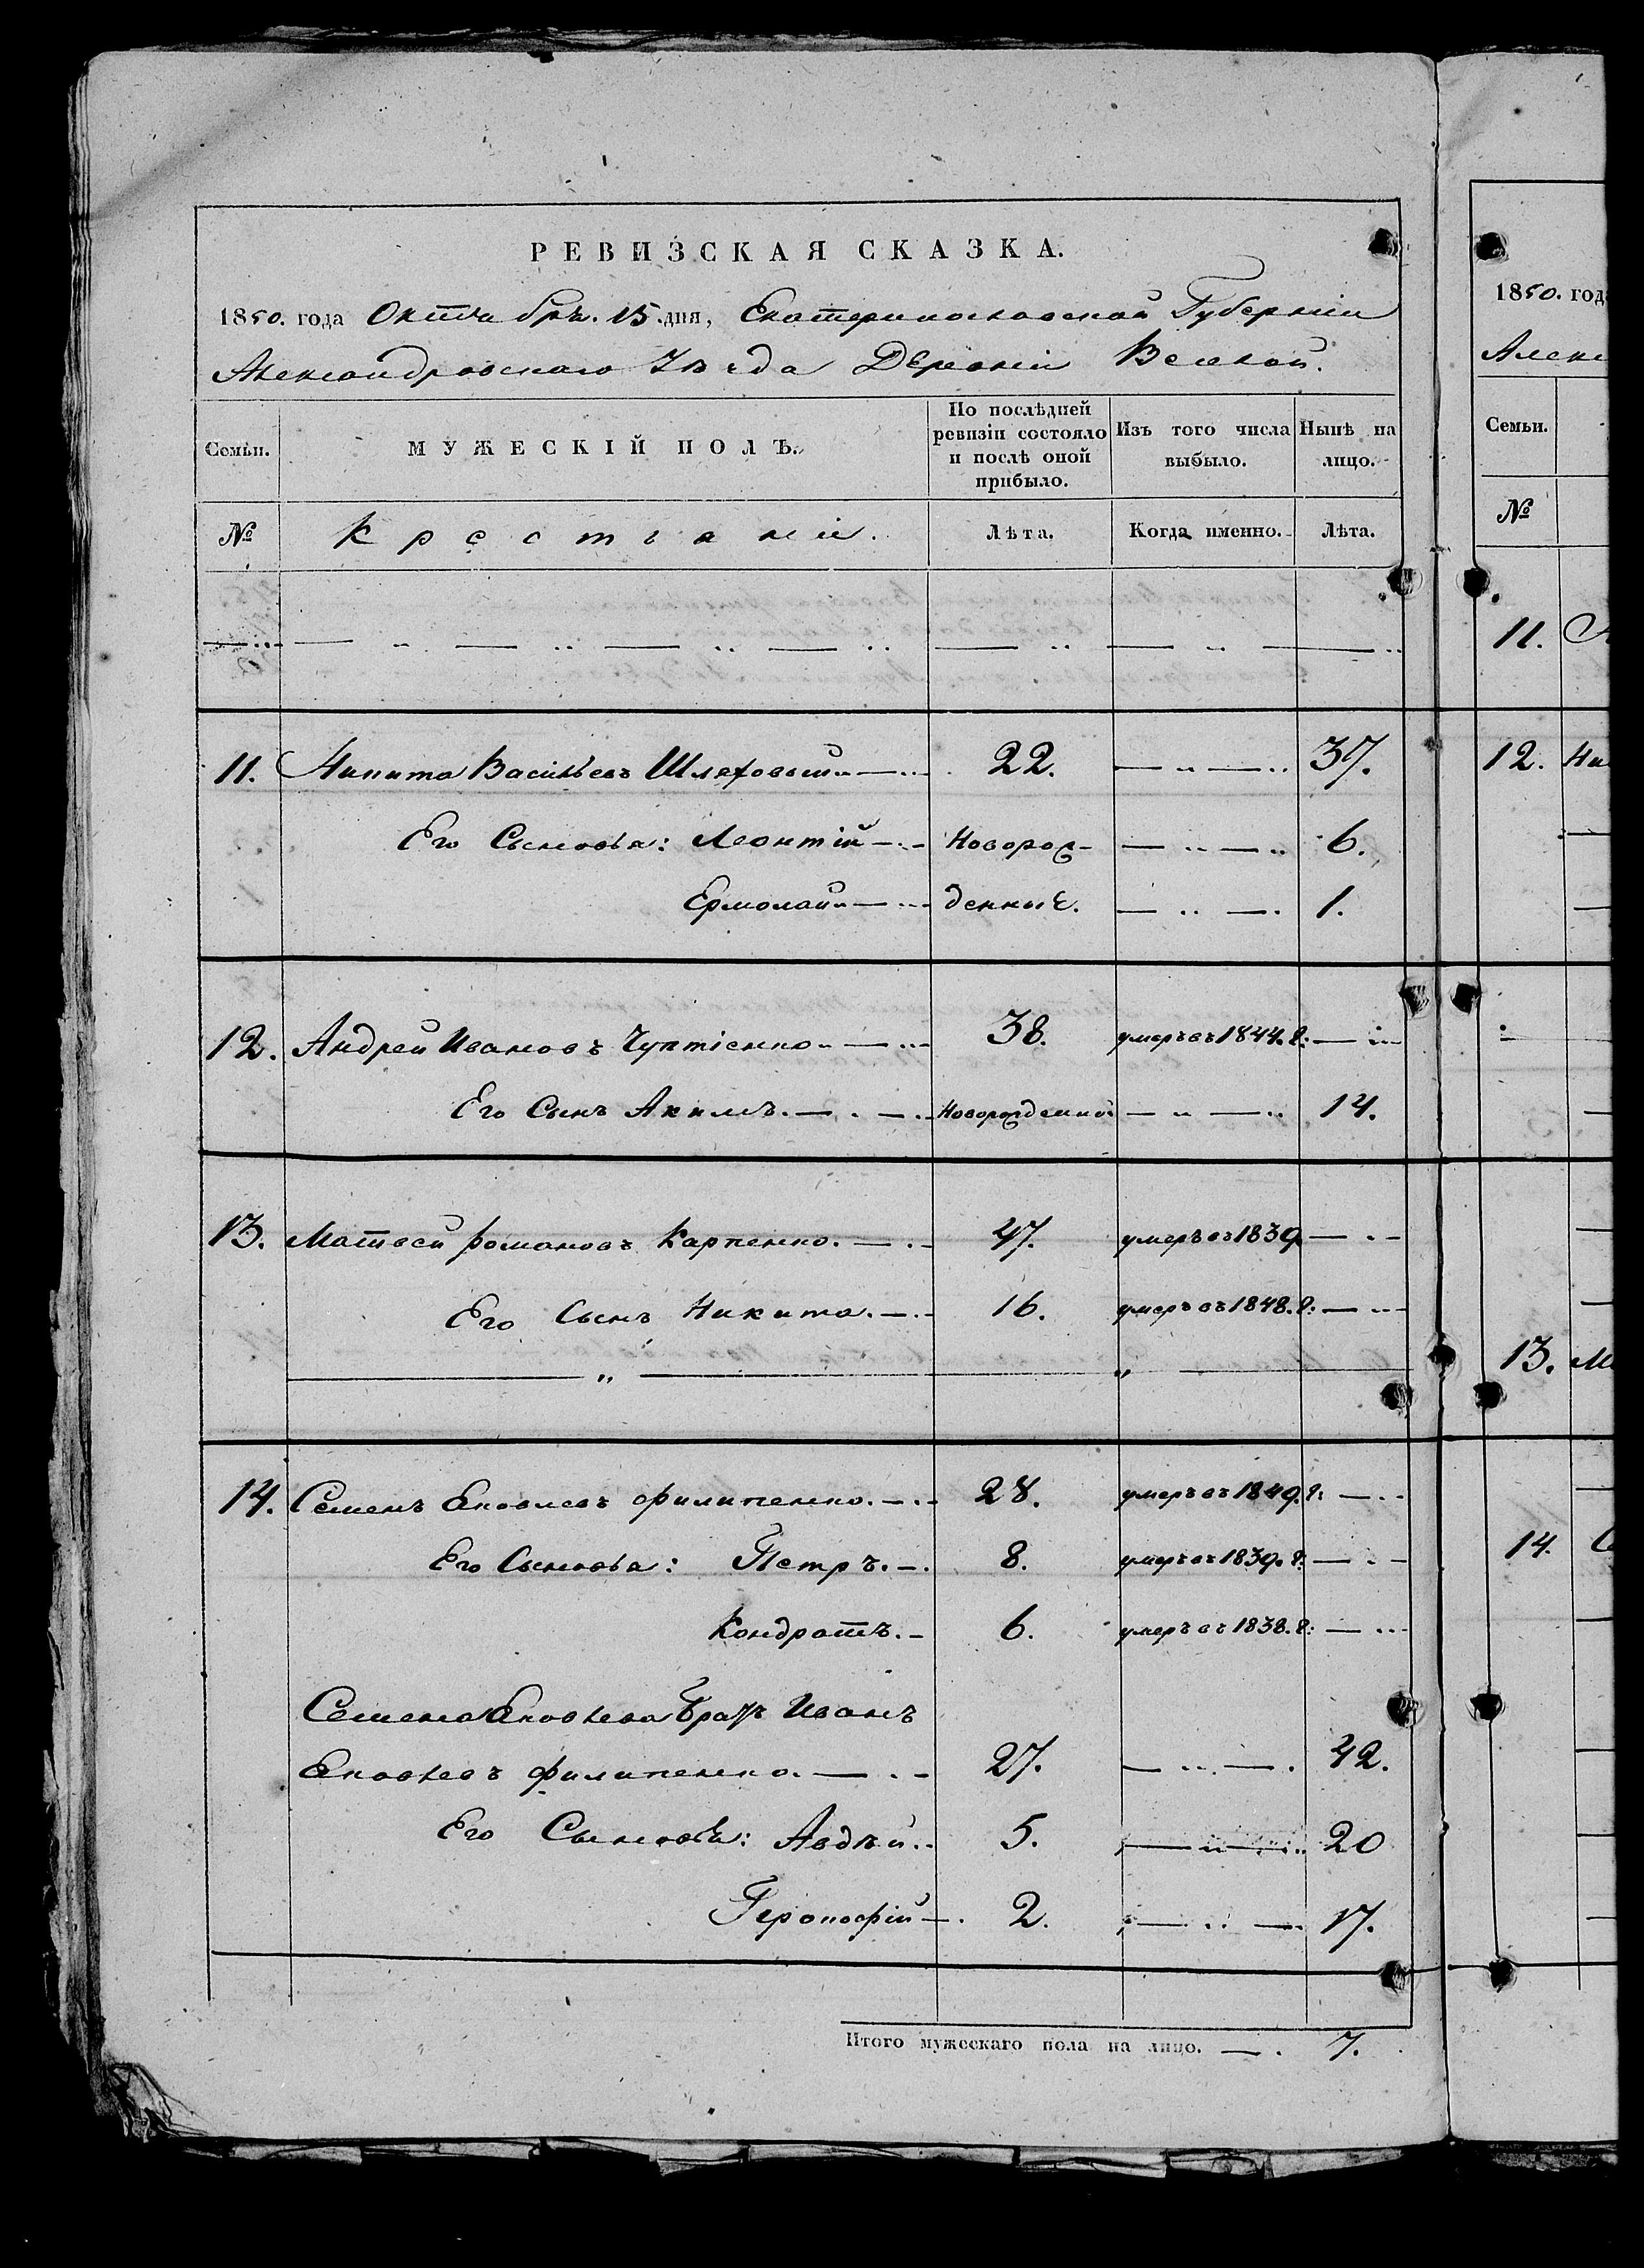 РЕВИЗСКАЯ СКАЗКА.
1850. года Октября. 15. дня, Екатеринославской Губерніи
Александровскаго Уѣзда Деревни Веселой.
Семьи. МУЖЕСКІЙ ПОЛЪ. По послѣдней ревизіи состояло и послѣ оной прибыло. Изъ того числа выбыло. Нынѣ на лицо.
№ Крестьяніи. Лѣта. Когда именно. Лѣта.
11. Никита Васильевъ Шляховый 22. 37.
Его Сыновья: Леонтій Новорож- 6.
Ермолай денные. 1.
12. Андрей Ивановъ 38. умеръ въ 1844. г:
Его Сынъ Акимъ. Новорожденной 14.
13. Матвей Романовъ Карпенко. 47. умеръ въ 1839
Его Сынъ Никита. 16. умеръ въ 1848. г:
14. Семенъ Яковлевъ Филипенко. 28. умеръ въ 1849. г:
Его Сыновья: Петръ. 8. умеръ въ 1839. г:
Кондратъ. 6. умеръ въ 1838. г:
Семена Яковлева Братъ Иванъ
Яковлевъ Филипенко. 27. 42.
Его Сыновья: Авдѣй. 5. 20
2. 17.
Итого мужескаго пола на лицо. 7.
1850. года
Алекс
Семьи.
№
11.
12. Ни
13. Ма
14. С